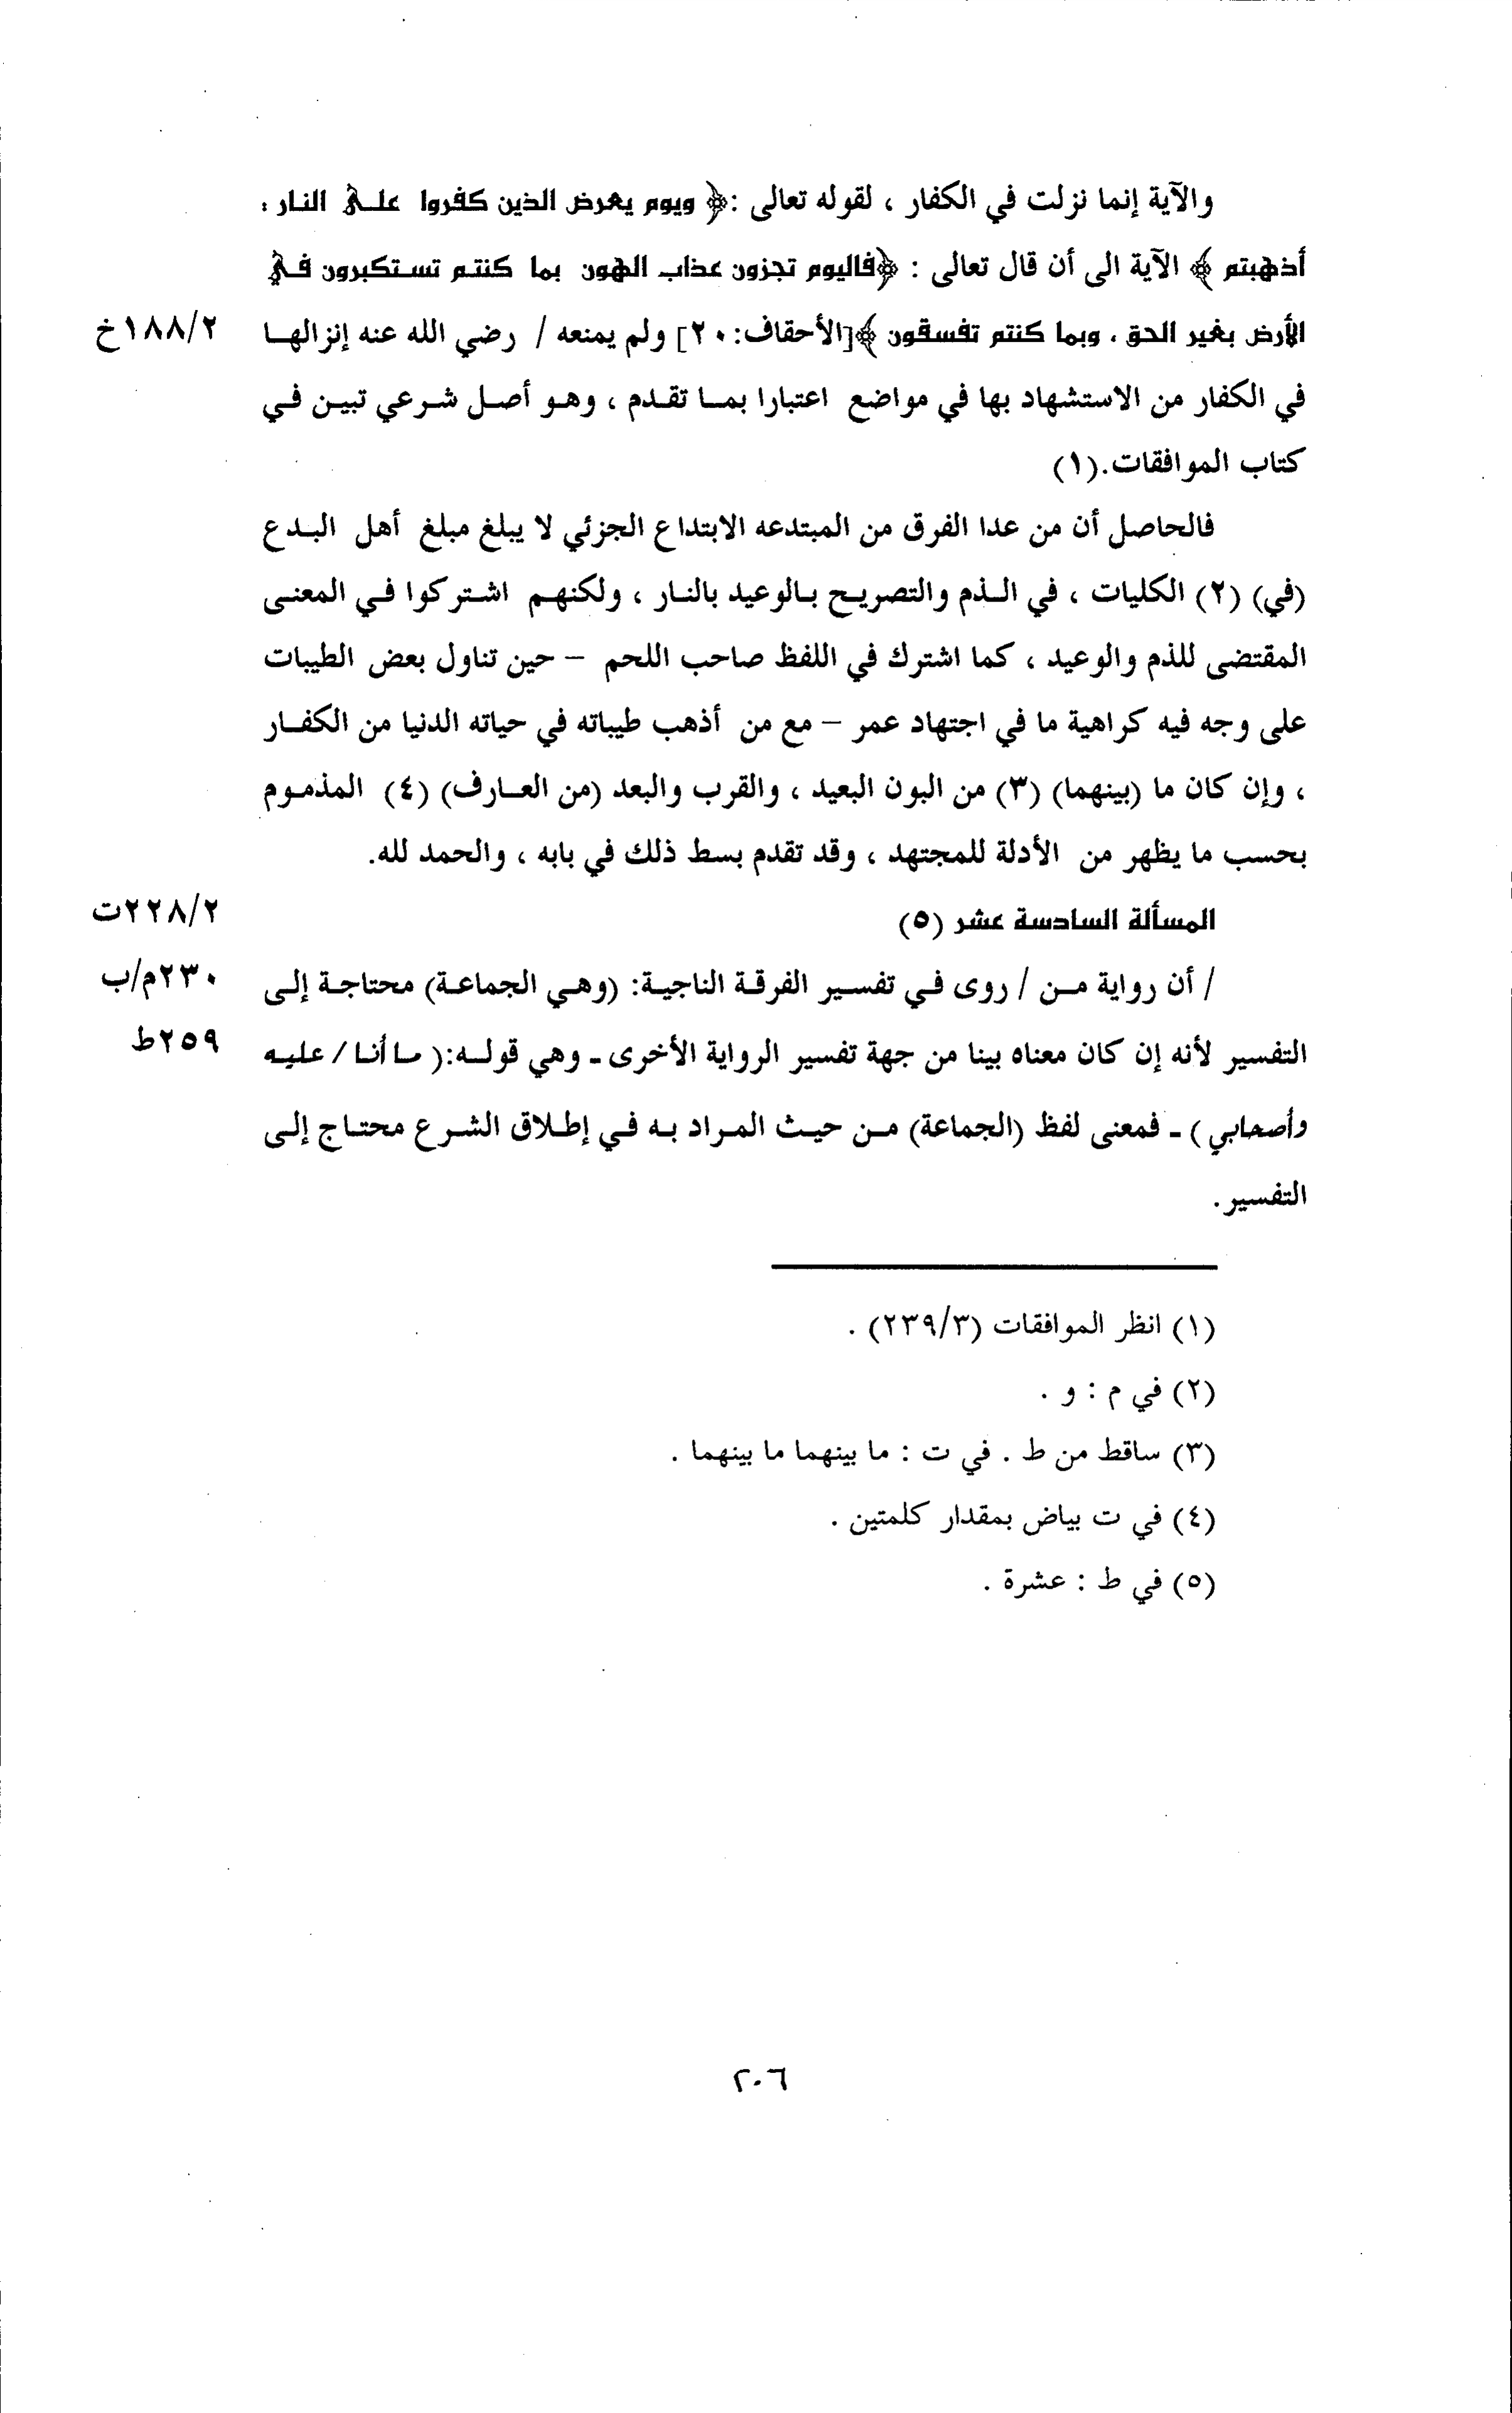 والآية إنما نزلت في الكفار ، لقوله تعالى :﴿ ويوم يعرض الذين كفروا على النار :
أذهبتم ﴾ الآية الى أن قال تعالى : ﴿فاليوم تجزون عذاب الهون بما كنتم تستكبرون في
الأرض بغير الحق ، وبما كنتم تفسقون ﴾[الأحقاف: ٢٠] ولم يمنعه / رضي الله عنه إنزالها ١٨٨/٢خ
في الكفار من الاستشهاد بها في مواضع اعتبارا بما تقدم ، وهو أصل شرعي تبين في
كتاب الموافقات.(١)
فالحاصل أن من عدا الفرق من المبتدعه الابتداع الجزئي لا يبلغ مبلغ أهل البدع
(في) (٢) الكليات ، في الذم والتصريح بالوعيد بالنار ، ولكنهم اشتركوا في المعنى
المقتضى للذم والوعيد ، كما اشترك في اللفظ صاحب اللحم – حين تناول بعض الطيبات
على وجه فيه كراهية ما في اجتهاد عمر – مع من أذهب طيباته في حياته الدنيا من الكفار
، وإن كان ما (بينهما) (٣) من البون البعيد ، والقرب والبعد (من العارف) (٤) المذموم
بحسب ما يظهر من الأدلة للمجتهد ، وقد تقدم بسط ذلك في بابه ، والحمد لله.
المسألة السادسة عشر (٥) ٢٢٨/٢ت
/ أن رواية من / روى في تفسير الفرقة الناجية: (وهي الجماعة) محتاجة إلى ٢٣٠م/ب
التفسير لأنه إن كان معناه بينا من جهة تفسير الرواية الأخرى ـ وهي قوله:( ما أنا / عليه ٢٥٩ط
وأصحابي ) ـ فمعنى لفظ (الجماعة) من حيث المراد به في إطلاق الشرع محتاج إلى
التفسير .
(١) انظر الموافقات (٢٣٩/٣) .
(٢) في م : و .
(٣) ساقط من ط . في ت : ما بينهما ما بينهما .
(٤) في ت بياض بمقدار كلمتين .
(٥) في ط : عشرة .
٢٠٦